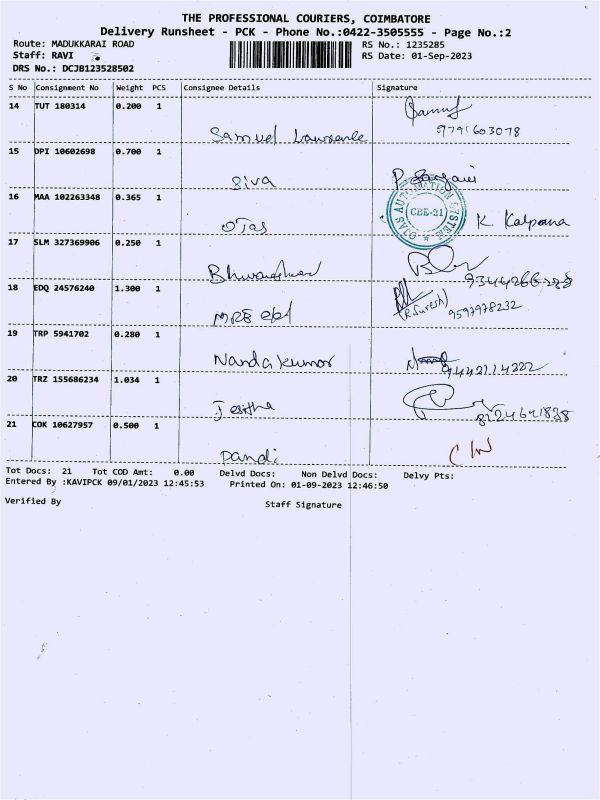 THE PROFESSIONAL COURIERS, COIMBATORE
Delivery Runsheet - PCK - Phone No.:0422-3505555 - Page No.:2
Route: MADUKKARAI ROAD RS No.: 1235285
Staff: RAVI RS Date: 01-Sep-2023
DRS No.: DCJB123528502
S No Consignment No Weight PCS Consignee Details Signature
14 TUT 180314 0.200 1
Samuel Lawrence 9791603078
15 DPI 10602698 0.700 1
Siva P
16 MAA 102263348 0.365 1
OTAS OTAS AUTOMATION SYSTEM CBE-21 K Kalpana
17 SLM 327369906 0.250 1
9344266
18 EDQ 24576240 1.300 1
MRE (R.Suresh) 9597978232
19 TRP 5941702 0.280 1
Nanda kumar 9442114222
20 TRZ 155686234 1.034 1
Jesitha
21 COK 10627957 0.500 1
Pandi
Tot Docs: 21 Tot COD Amt: 0.00 Delvd Docs: Non Delvd Docs: Delvy Pts:
Entered By :KAVIPCK 09/01/2023 12:45:53 Printed On: 01-09-2023 12:46:50
Verified By Staff Signature